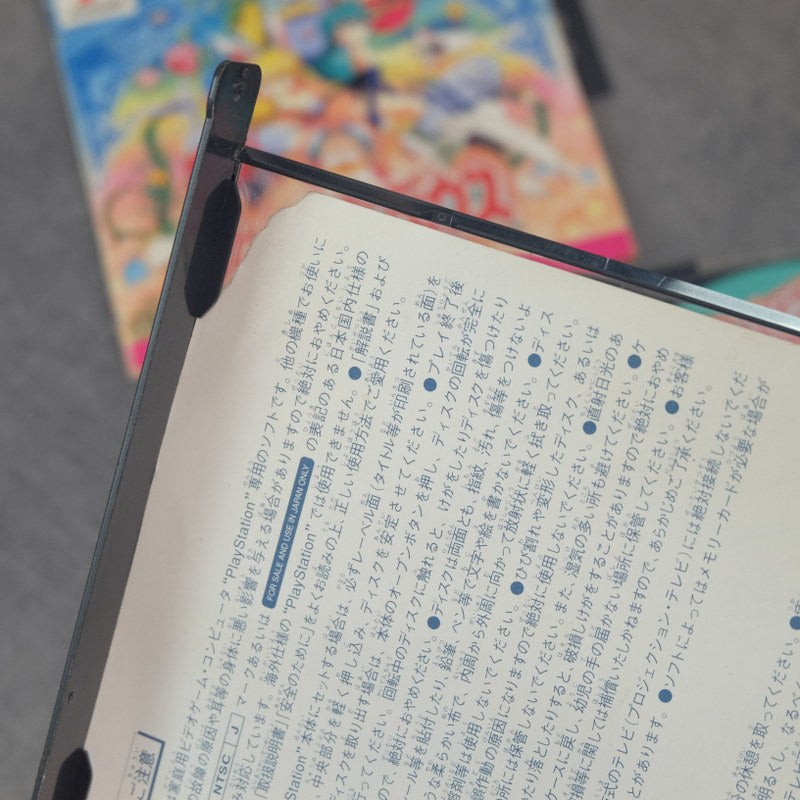 注意
は家庭用ビデオゲーム・コンピュータ“PlayStation”専用のソフトです。他の機種でお使いに
の故障の原因や耳等の身体に悪い影響を与える場合がありますので絶対におやめください。
NTSC J マークあるいは FOR SALE AND USE IN JAPAN ONLY の表記のある日本国内仕様の
み対応しています。海外仕様の“PlayStation”では使用できません。●「解説書」および
「取扱説明書」「安全のために」をよくお読みの上、正しい使用方法でご愛用ください。
Station”本体にセットする場合は、必ずレーベル面(タイトル等が印刷されている面)を
、中央部分を軽く押し込み、ディスクを安定させてください。●プレイ終了後
ィスクを取り出す場合は、本体のオープンボタンを押し、ディスクの回転が完全に
行ってください。回転中のディスクに触れると、けがをしたりディスクを傷つけたり
ので、絶対におやめください。●ディスクは両面とも、指紋、汚れ、傷等をつけないよ
ール等を貼付したり、鉛筆、ペン等で文字や絵を書かないでください。●ディス
うな柔らかい布で、内周から外周に向かって放射状に軽く拭き取ってください。
溶剤等は使用しないでください。●ひび割れや変形したディスク、あるいは
誤作動の原因になりますので絶対に使用しないでください。●直射日光のあ
所には保管しないでください。また、湿気の多い所も避けてください。●ケ
たり落としたりすると、破損しけがをすることがありますので絶対におやめ
ケースに戻し、幼児の手の届かない場所に保管してください。●お客様
損等に関しては補償いたしかねますので、あらかじめご了承ください。
式のテレビ(プロジェクション・テレビ)には絶対接続しないでくだ
とがあります。●ソフトによってはメモリーカードが必要な場合が
の休憩を取ってください。●
明るくし、なるべ